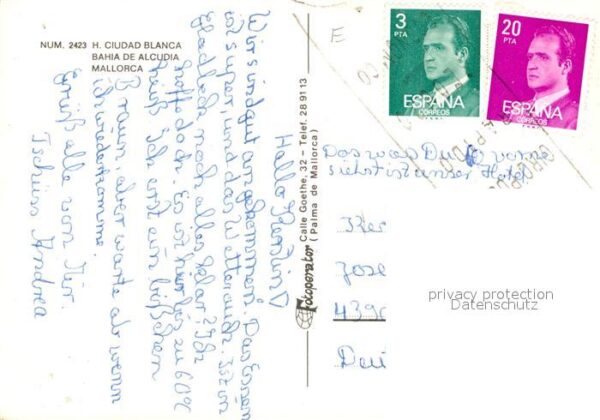 NUM. 2423 H. CIUDAD BLANCA
BAHIA DE ALCUDIA
MALLORCA
E
3
PTA
ESPAÑA
CORREOS
20
PTA
ESPAÑA
CORREOS
Fotoperator Calle Goethe, 32 - Telef. 28 91 13
(Palma de Mallorca)
Hallo
Wir sind gut angekommen. Das Essen
ist super, und das Wetter auch. Ist
noch alles klar
hofft doch. Es ist hier bis zu 60°C
heiß. Ich erst ein bißchen
Braun, aber warte ab wenn
ich wiederkomme.
Grüß alle von Mir.
Tschüss Andrea
Das was Du vorne
siehst ist unser Hotel
Jose
439
privacy protection
Datenschutz